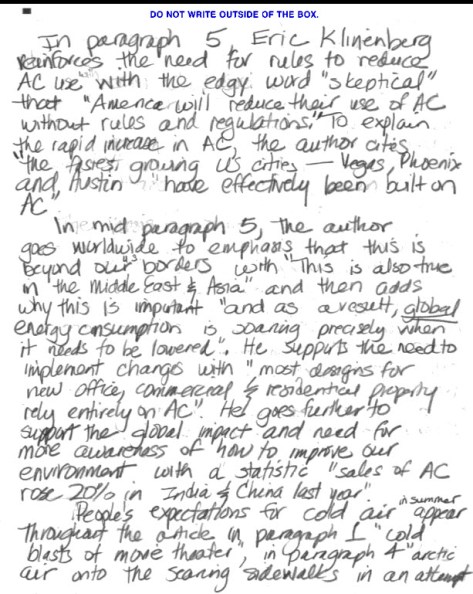 DO NOT WRITE OUTSIDE OF THE BOX.
In paragraph 5, Eric Klinenberg
reinforces the need for rules to reduce
AC use with the edgy word "skeptical"
that "America will reduce their use of AC
without rules and regulations." To explain
the rapid increase in AC, the author cites
"the fastest growing US cities — Vegas, Phoenix
and Austin "have effectively been built on
AC"
In mid paragraph 5, the author
goes worldwide to emphasis that this is
beyond our borders with "This is also true
in the Middle East & Asia" and then adds
why this is important "and as a result, global
energy consumption is soaring precisely when
it needs to be lowered". He supports the need to
implement change with "most designs for
new office, commercial & residential property
rely entirely on AC". He goes further to
support the global impact and need for
more awareness of how to improve our
environment with a statistic "sales of AC
rose 20% in India & China last year".
People's expectations for cold air in summer appear
throughout the article in paragraph 1 "cold
blasts of movie theater", in paragraph 4 "arctic
air onto the searing sidewalks in an attempt